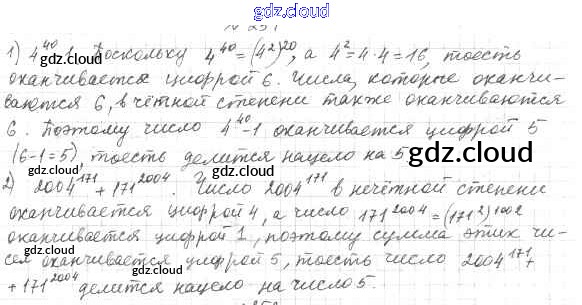 gdz.cloud
№ 251
1) 4⁴⁰-1. Поскольку 4⁴⁰=(4²)²⁰, а 4²=4·4=16, тоесть
оканчивается цифрой 6. Числа, которые оканчи-
ваются 6, в чётной степени также оканчиваются
6. Поэтому число 4⁴⁰-1 оканчивается цифрой 5
(6-1=5), тоесть делится нацело на 5
gdz.cloud
2) 2004¹⁷¹+171²⁰⁰⁴. Число 2004¹⁷¹ в нечётной степени
оканчивается цифрой 4, а число 171²⁰⁰⁴=(171²)¹⁰⁰²
оканчивается цифрой 1, поэтому сумма этих чи-
сел оканчивается цифрой 5, тоесть число 2004¹⁷¹+
+171²⁰⁰⁴ делится нацело на число 5.
gdz.cloud